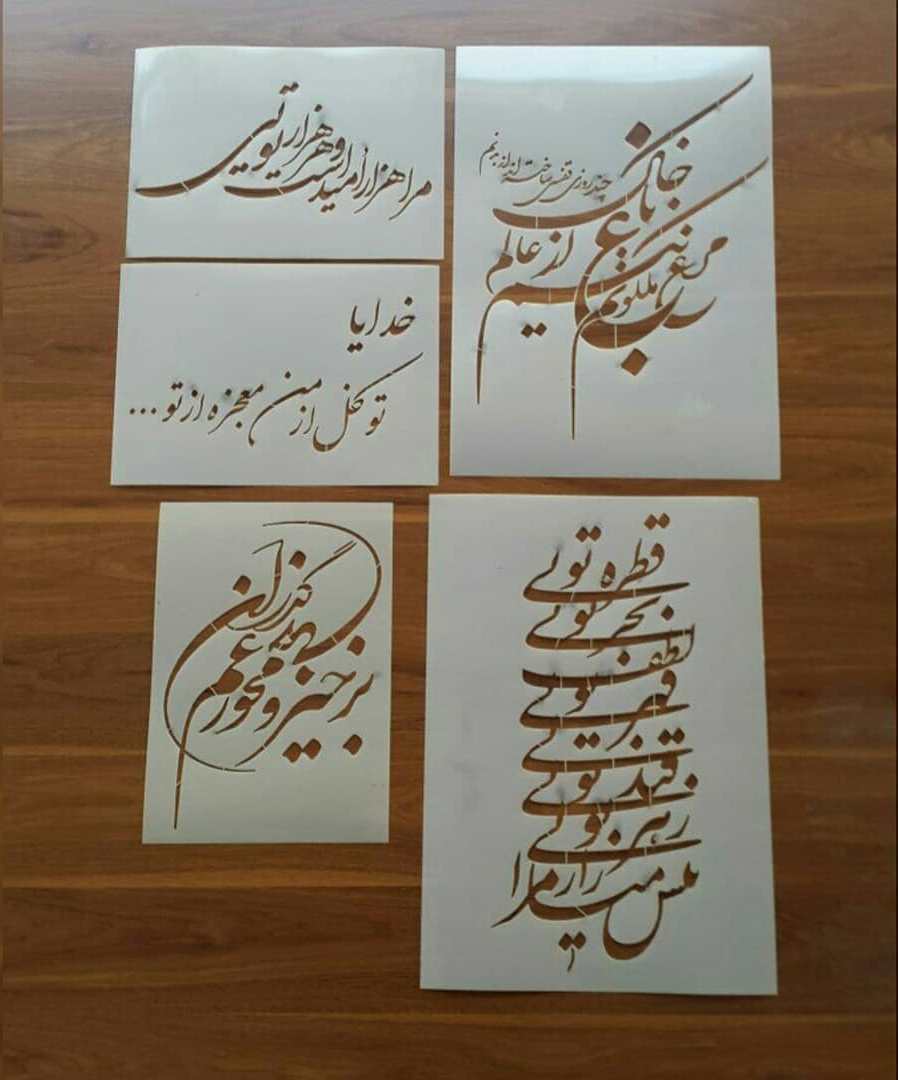 مرا هزار امید است و هر هزار تویی
مرغ باغ ملکوتم نیم از عالم خاک
چند روزی قفسی ساخته اند از بدنم
خدایا
توکل از من معجزه از تو ...
برخیز و مخور غم جهان گذران
قطره تویی
بحر تویی
لطف تویی
قهر تویی
قند تویی
زهر تویی
بیش میازار مرا